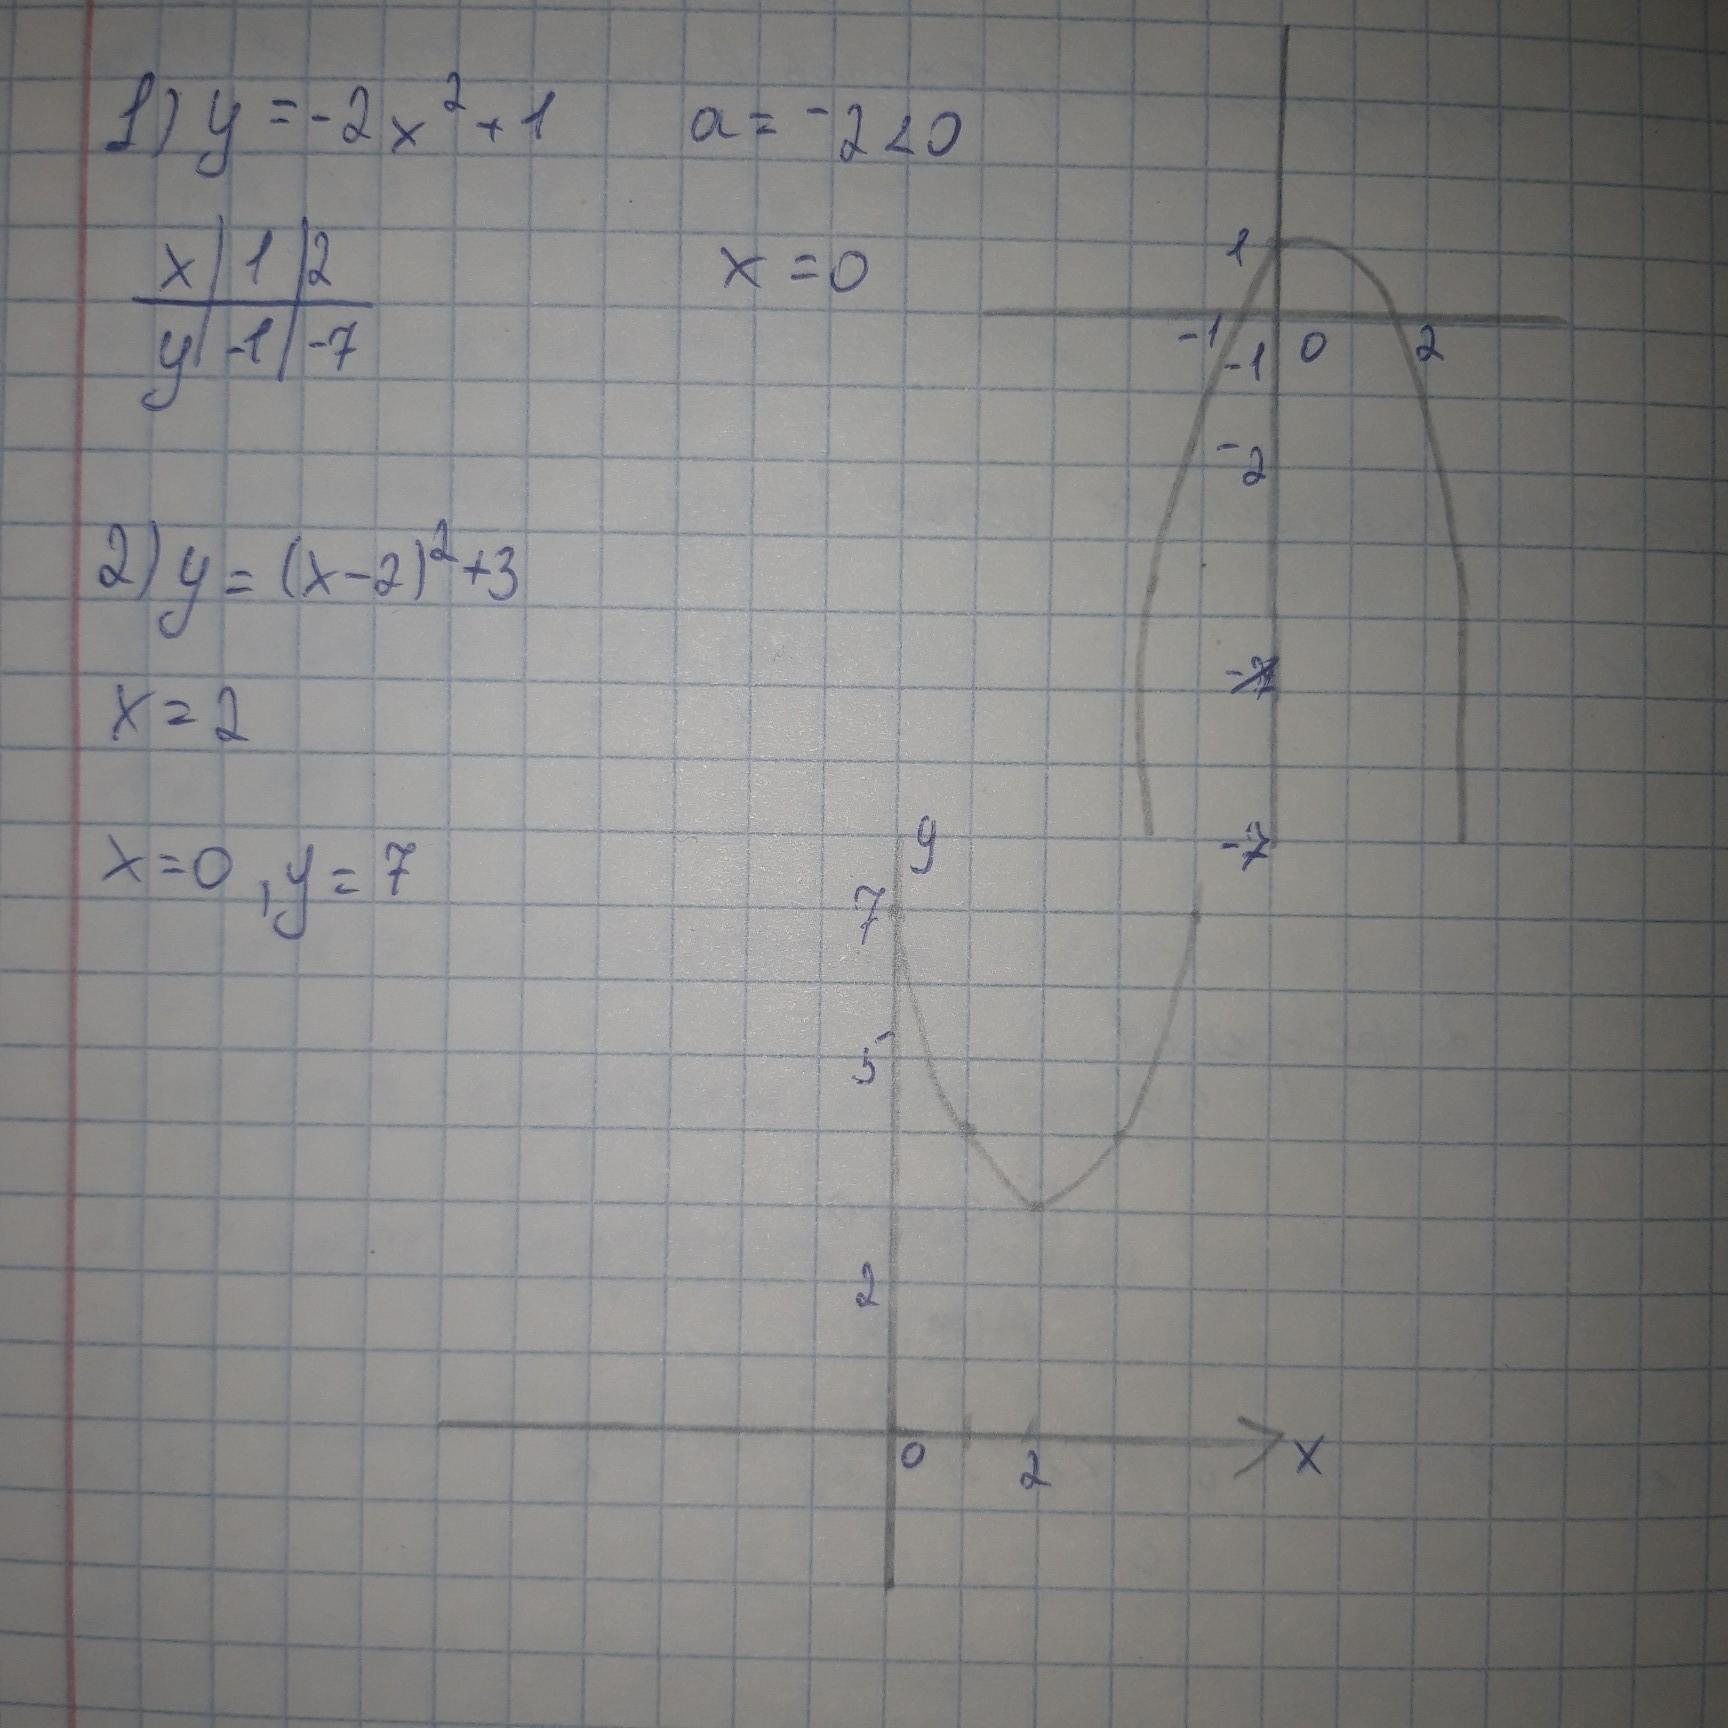 1) y = -2x² + 1  a = -2 < 0
x | 1 | 2
y | -1 | -7
x = 0
2) y = (x-2)² + 3
x = 2
x = 0, y = 7
1
-1 0 2
-1
-2
-7
y
7
5
2
0 2 x